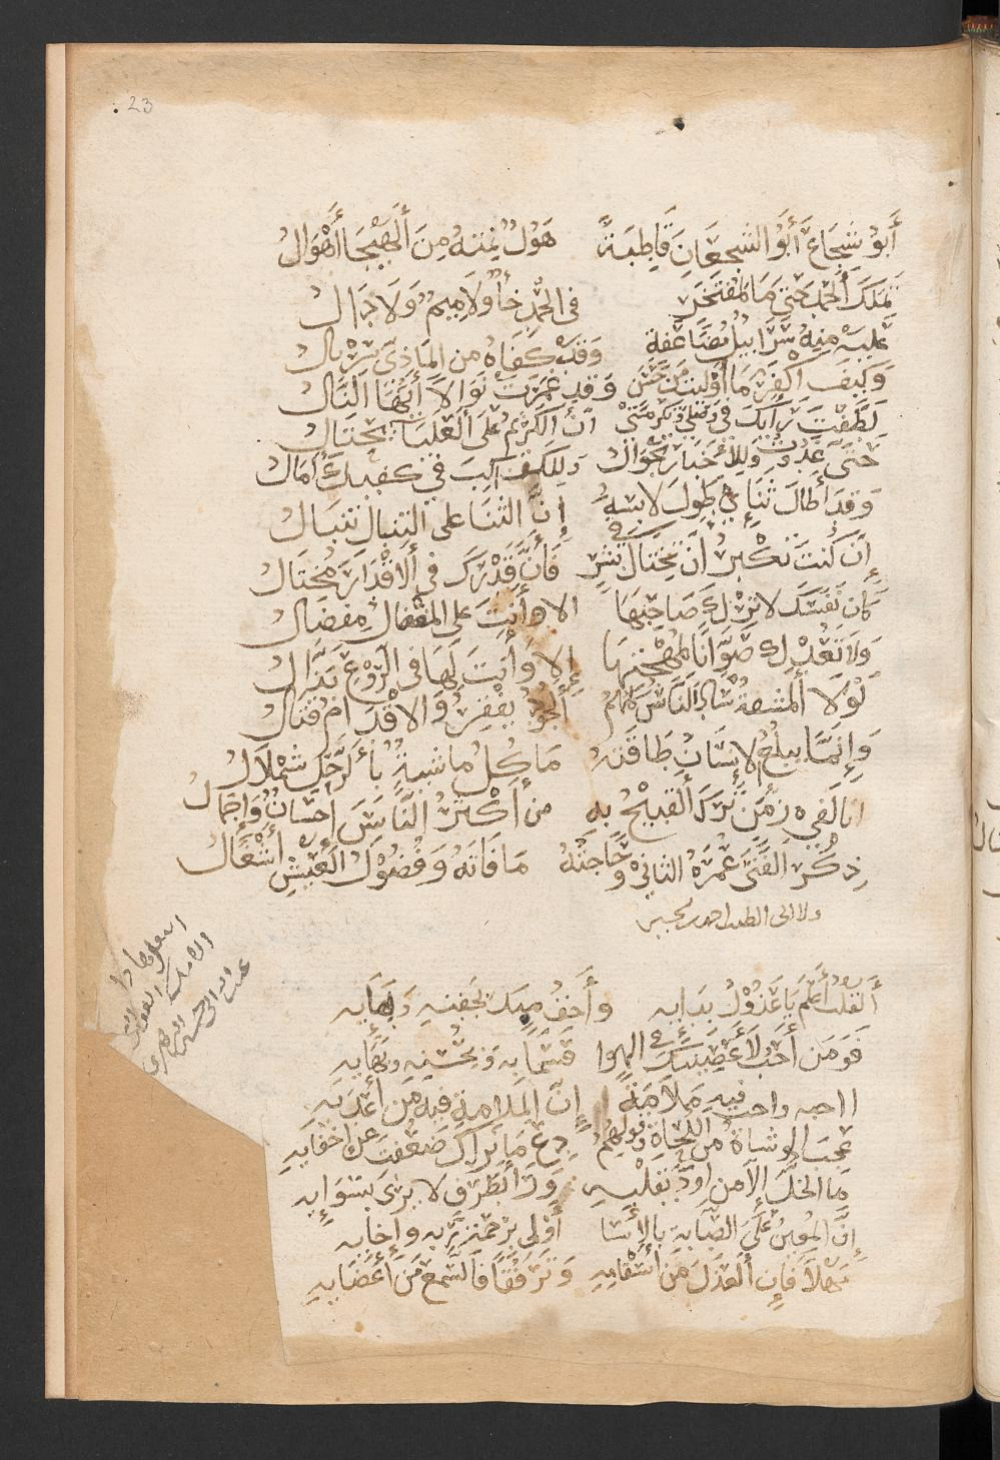 23
أَبُو شُجَاعٍ أَبُو الشُّجْعَانِ قَاطِبَةً هَوْلٌ نَمَتْهُ مِنَ الْهَيْجَا أَهْوَالُ
تَمَلَّكَ الْحَمْدَ حَتَّى مَا لِمُفْتَخِرٍ فِي الْحَمْدِ حَاءٌ وَلَا مِيمٌ وَلَا دَالُ
عَلَيْهِ مِنْهُ سَرَابِيلُ مُضَاعَفَةٌ وَقَدْ كَفَاهُ مِنَ الْمَاذِيِّ سِرْبَالُ
وَكَيْفَ أَكْفُرُ مَا أَوْلَيْتَ مِنْ حَسَنٍ وَقَدْ غَمَرْتَ نَوَالًا أَيُّهَا النَّالُ
لَطَّفْتَ رَأْيَكَ فِي تَكْرِمَتِي انّ الْكَرِيمَ عَلَى الْعَلْيَاءِ يَحْتَالُ
حَتَّى غَدَوْتَ وَلِلْأَخْبَارِ تَجْوَالٌ وَلِلْكَوَاكِبِ فِي كَفَّيْكَ آمَالُ
وَقَدْ أَطَالَ ثَنَائِي طُولُ لَابِسِهِ إِنَّ الثَّنَا عَلَى التِّنْبَالِ تِنْبَالُ
إِنْ كُنْتَ تَكْبُرُ أَنْ تَخْتَالَ فِي بَشَرٍ فَإِنَّ قَدْرَكَ فِي الْأَقْدَارِ مُخْتَالُ
كَأَنَّ نَفْسَكَ لَا تَرْضَاكَ صَاحِبَهَا الا وأَنْتَ على الْمِفْضَالِ مِفْضَالُ
وَلَا تَعُدُّكَ صَوَّانًا لِمُهْجَتِهَا إِلَّا وَأَنْتَ لَهَا فِي الرَّوْعِ بَذَّالُ
لَوْلَا الْمَشَقَّةُ سَادَ النَّاسُ كُلُّهُمُ الْجُودُ يُفْقِرُ وَالْإِقْدَامُ قَتَّالُ
وَإِنَّمَا يَبْلُغُ الْإِنْسَانُ طَاقَتَهُ مَا كُلُّ مَاشِيَةٍ بِالرَّحْلِ شِمْلَالُ
انا لفي زمن تَرْكُ الْقَبِيحِ بِهِ من أَكْثَرِ النَّاسِ إِحْسَانٌ وَإِجْمَالُ
ذِكْرُ الْفَتَى عُمْرُهُ الثاني وَحَاجَتُهُ مَا فَاتَهُ وَفُضُولُ الْعَيْشِ أَشْغَالُ
الْقَلْبُ أَعْلَمُ يَا عَذُولُ بِدَائِهِ وَأَحَقُّ مِنْكَ بِجَفْنِهِ وَبِمَائِهِ
فَوَمَنْ أُحِبُّ لَأَعْصِيَنَّكَ فِي الهوا قَسَمًا بِهِ وَبِحُسْنِهِ وَبَهَائِهِ
ااحبه واحب فِيهِ مَلَامَةً إِنَّ الْمَلَامَةَ فِيهِ مِنْ أَعْدَائِهِ
عَجِبَ الْوُشَاةُ مِنَ اللُّحَاةِ وَقَوْلِهِمْ دَعْ مَا نَرَاكَ ضَعُفْتَ عَنْ إِخْفَائِهِ
مَا الْخِلُّ إِلَّا مَنْ أَوَدُّ بِقَلْبِهِ وَأَرَى بِطَرْفٍ لَا يَرَى بِسَوَائِهِ
إِنَّ الْمُعِينَ عَلَى الصَّبَابَةِ بِالْأَسَا أَوْلَى بِرَحْمَةِ رَبِّهِ وَإِخَائِهِ
مَهْلًا فَإِنَّ الْعَذْلَ مِنْ أَسْقَامِهِ وَتَرَفُّقًا فَالسَّمْعُ مِنْ أَعْضَائِهِ